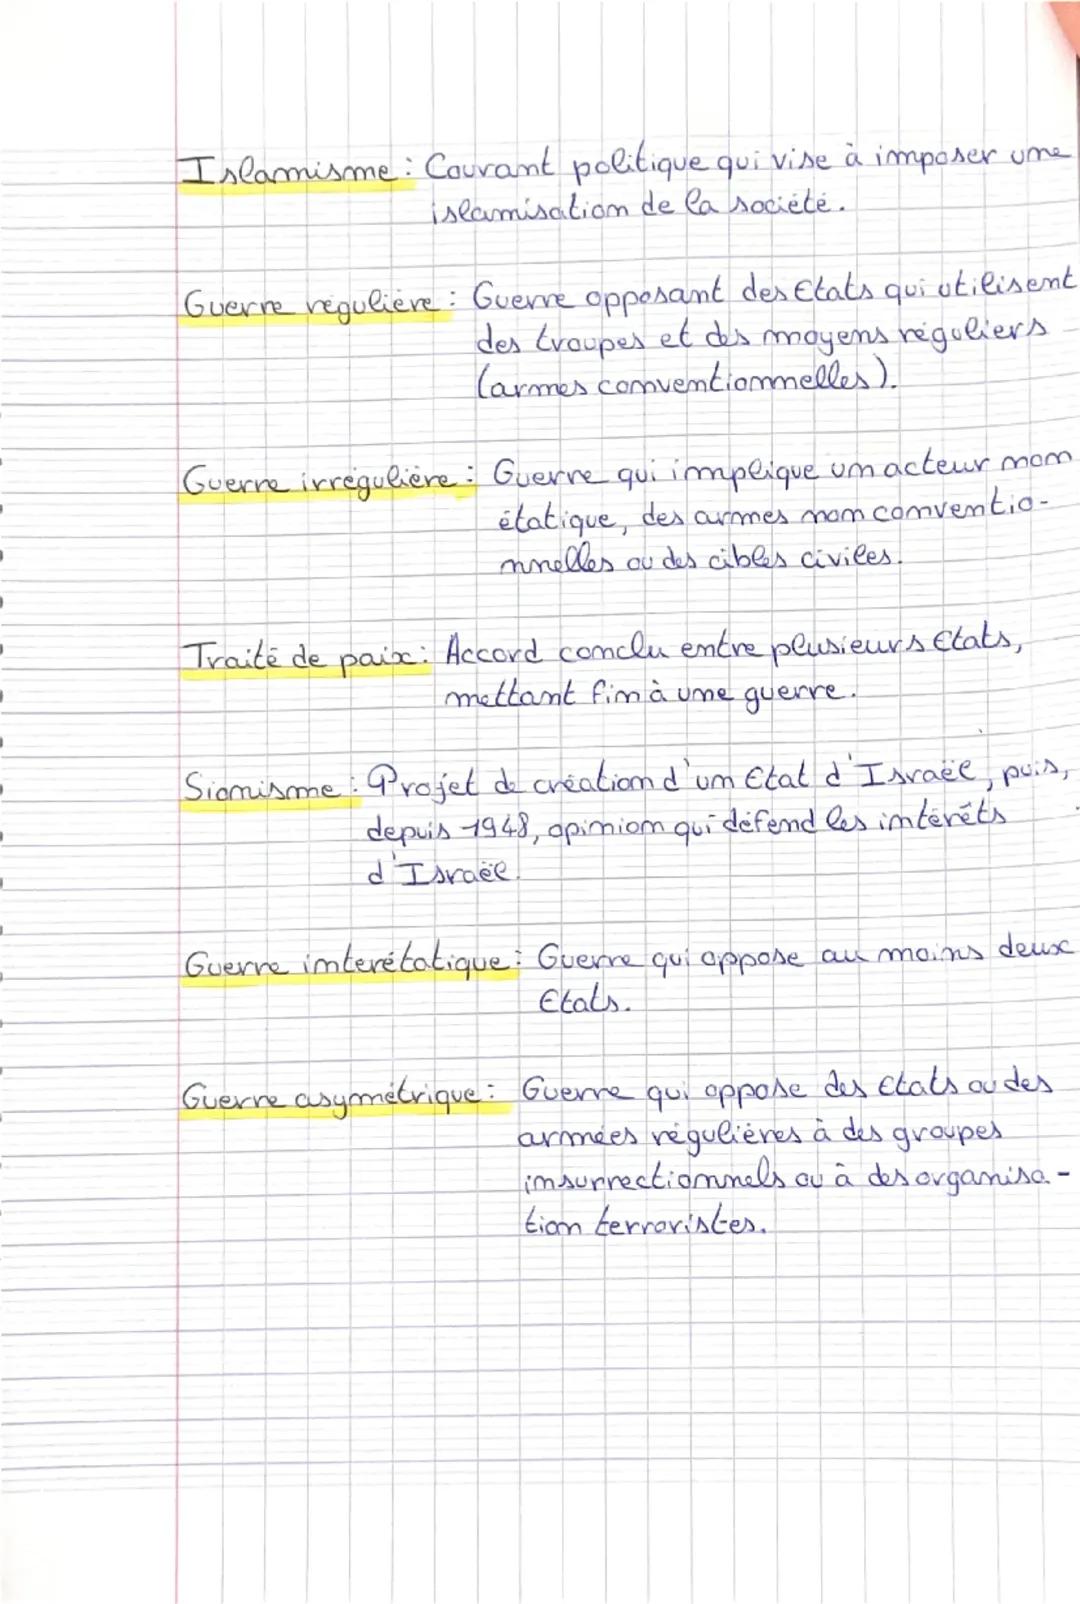 Islamisme : Courant politique qui vise à imposer une
islamisation de la société.
Guerre régulière : Guerre opposant des Etats qui utilisent
des troupes et des moyens réguliers
(armes conventionnelles).
Guerre irrégulière : Guerre qui implique un acteur non
étatique, des armes non conventio-
nnelles ou des cibles civiles.
Traité de paix : Accord conclu entre plusieurs Etats,
mettant fin à une guerre.
Sionisme : Projet de création d'un Etat d'Israël, puis,
depuis 1948, opinion qui défend les intérêts
d'Israël.
Guerre interétatique : Guerre qui oppose au moins deux
Etats.
Guerre asymétrique : Guerre qui oppose des Etats ou des
armées régulières à des groupes
insurrectionnels ou à des organisa-
tion terroristes.